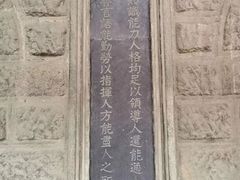 識能力人格均足以領導人還能適
能勤勞以指揮人方能盡人之